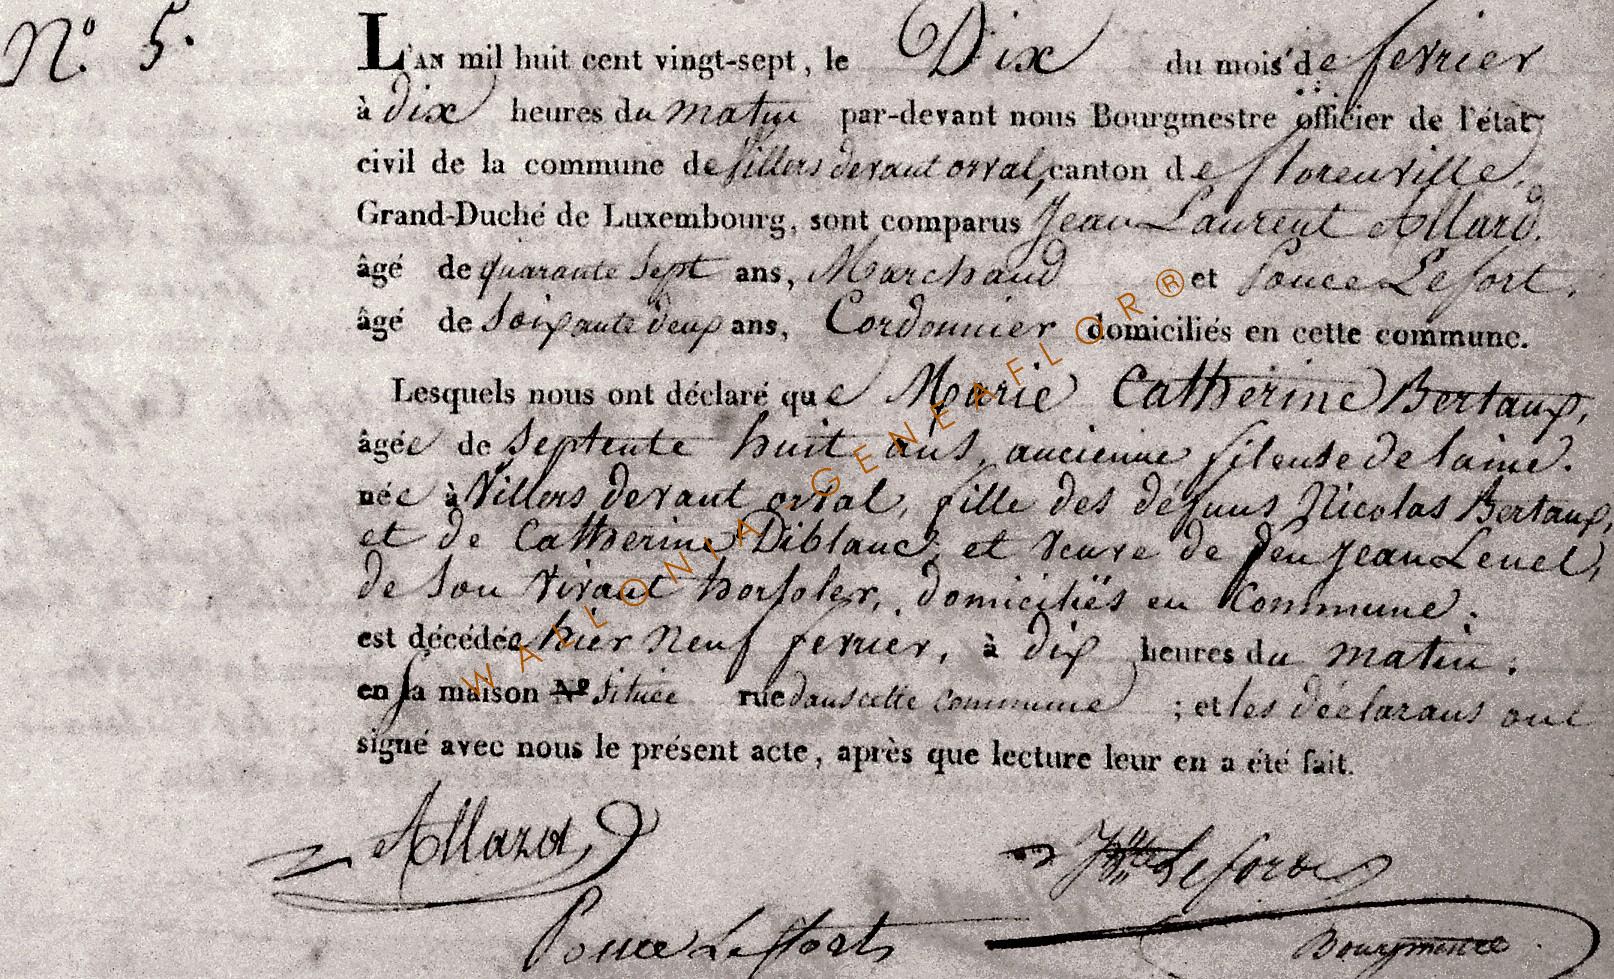 N.° 5.
L'AN mil huit cent vingt-sept, le Dix du mois de fevrier
à dix heures du matin par-devant nous Bourgmestre officier de l'état
civil de la commune de villers devant orval, canton de florenville,
Grand-Duché de Luxembourg, sont comparus Jean Laurent Allard,
âgé de quarante sept ans, Marchand et Ponce Lefort,
âgé de Soixante deux ans, Cordonnier domiciliés en cette commune.
Lesquels nous ont déclaré que Marie Catherine Bertaux,
âgée de septente huit ans, ancienne fileuse de laine.
née à Villers devant orval, fille des défuns Nicolas Bertaux,
et de Catherine Diblanc, et veuve de feu Jean
de son vivant domiciliës en Commune;
est décédée hier neuf fevrier, à dix heures du matin;
en sa maison N.° située rue dans cette commune ; et les déclarans ont
signé avec nous le présent acte, après que lecture leur en a été fait.
Allard
Lefort
Ponce Lefort
Bourgmestre
WALLONIA GENEAFLOR®